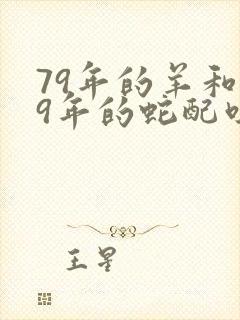 79年的羊和
9年的蛇配
王星